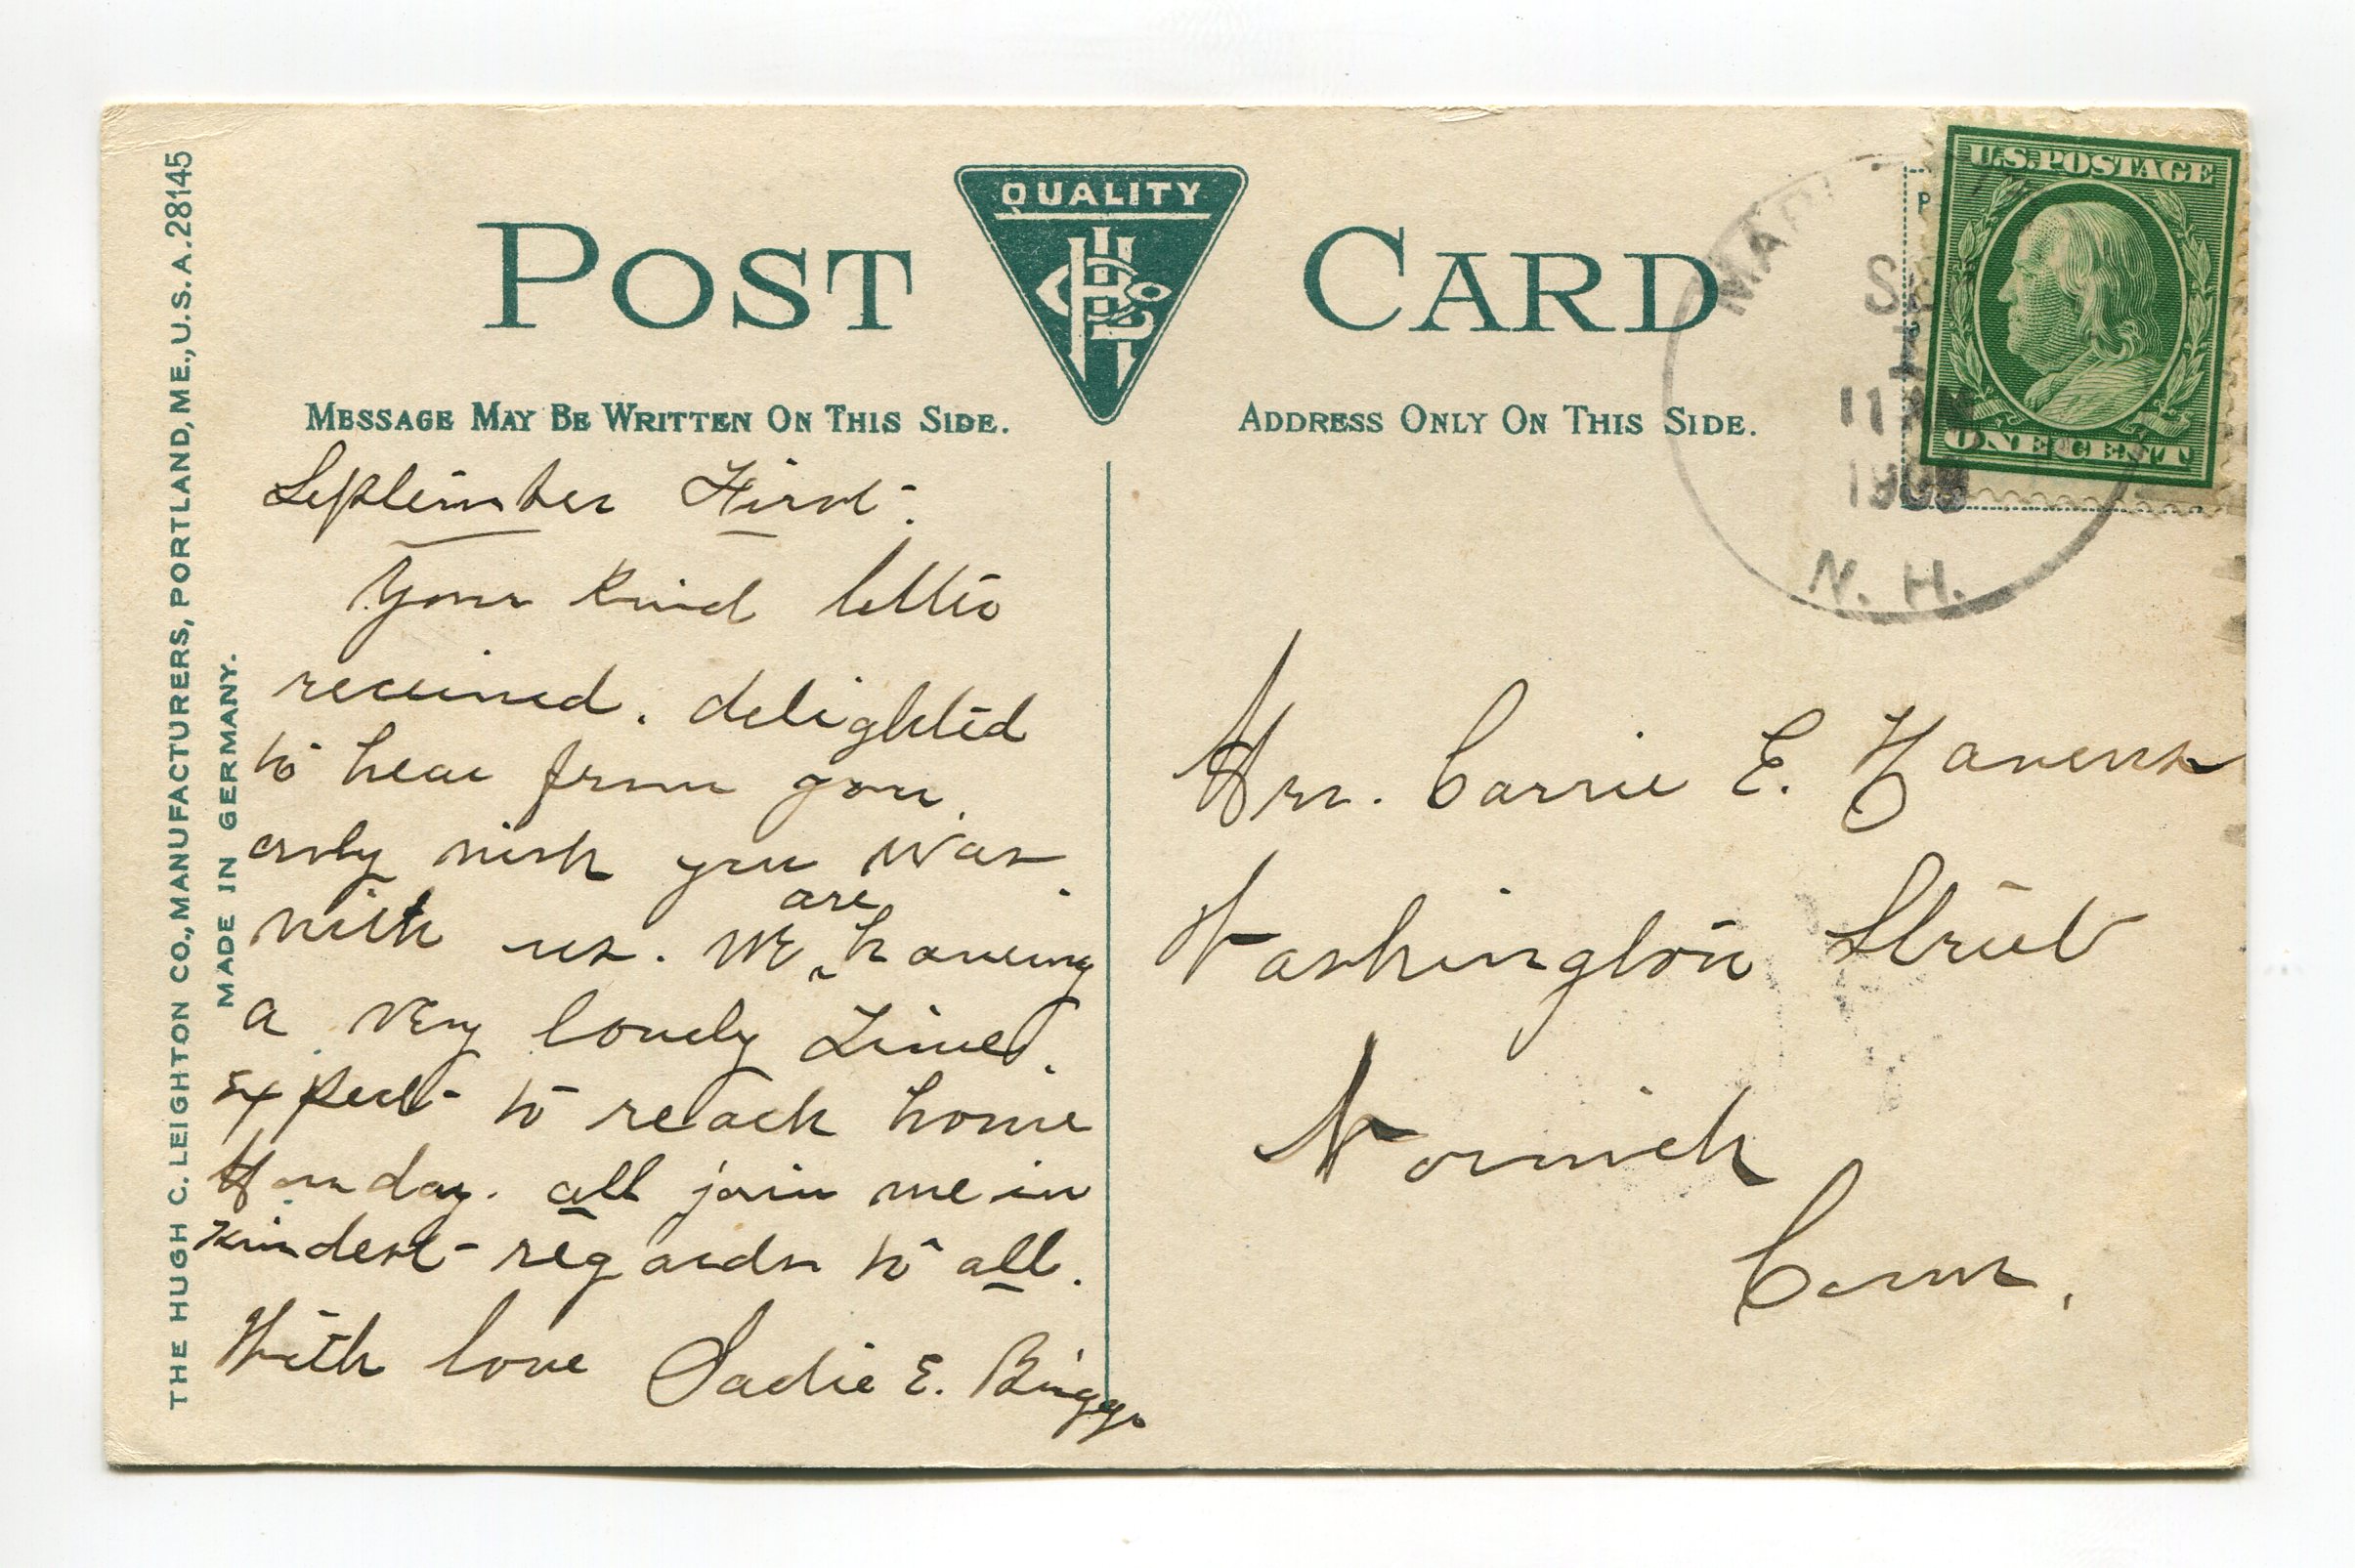 THE HUGH C. LEIGHTON CO., MANUFACTURERS, PORTLAND, ME., U.S.A. 28145
MADE IN GERMANY.
POST CARD
QUALITY
MESSAGE MAY BE WRITTEN ON THIS SIDE.
September First.
Your kind letter
received. delighted
to hear from you.
only wish you was
with us. We are having
a very lovely time.
Expect to reach home
Monday. all join me in
kindest regards to all.
With love Sadie E.
ADDRESS ONLY ON THIS SIDE.
U.S. POSTAGE
ONE CENT
11 AM
1909
N. H.
Mrs. Carrie E. Havens
Washington Street
Norwich
Conn.